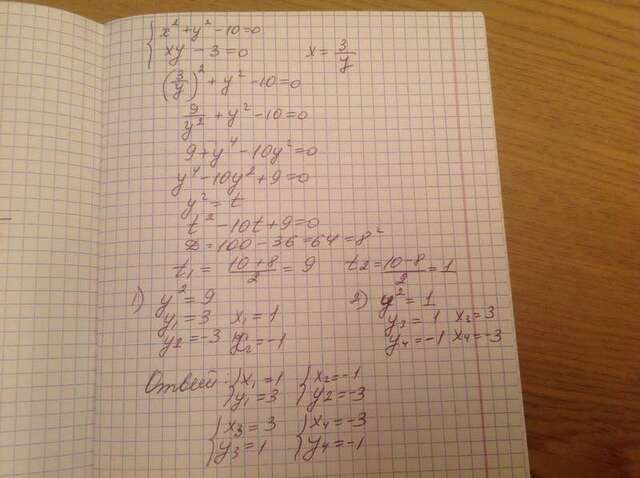 { x² + y² - 10 = 0
{ xy - 3 = 0 x = 3/y
(3/y)² + y² - 10 = 0
9/y² + y² - 10 = 0
9 + y⁴ - 10y² = 0
y⁴ - 10y² + 9 = 0
y² = t
t² - 10t + 9 = 0
D = 100 - 36 = 64 = 8²
t₁ = (10+8)/2 = 9 t₂ = (10-8)/2 = 1
1) y² = 9 2) y² = 1
y₁ = 3 x₁ = 1 y₃ = 1 x₃ = 3
y₂ = -3 y₂ = -1 y₄ = -1 x₄ = -3
Ответ: { x₁ = 1 { x₂ = -1
{ y₁ = 3 { y₂ = -3
{ x₃ = 3 { x₄ = -3
{ y₃ = 1 { y₄ = -1